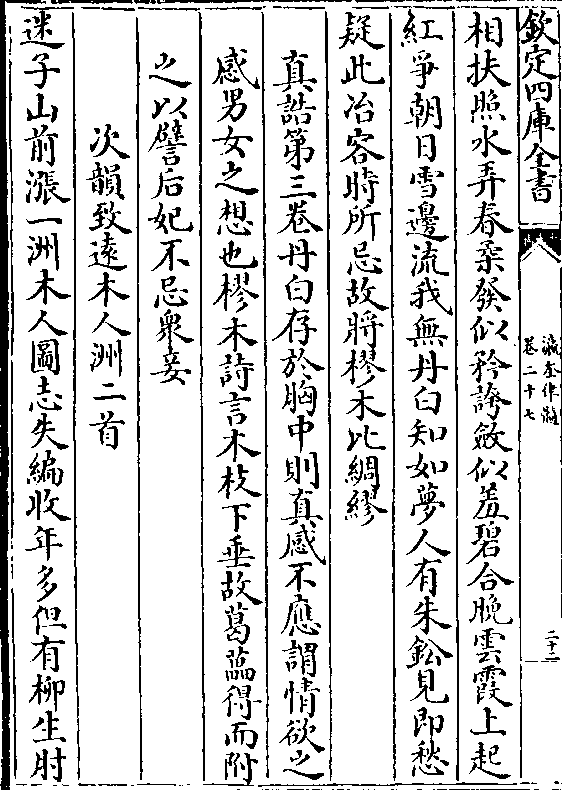 欽定四庫全書
瀛奎律髓
卷二十七
二十二
相扶照水弄春柔發似矜誇斂似羞碧合晚雲霞上起
紅爭朝日雪邊流我無丹白知如夢人有朱鉛見即愁
疑此冶容時所忌故將樛木比綢繆
真誥第三卷丹白存於胸中則真感不應謂情欲之
感男女之想也樛木詩言木枝下垂故葛藟得而附
之以譬后妃不忌衆妾
次韻致遠木人洲二首
迷子山前漲一洲木人圖志失編收年多但有柳生肘